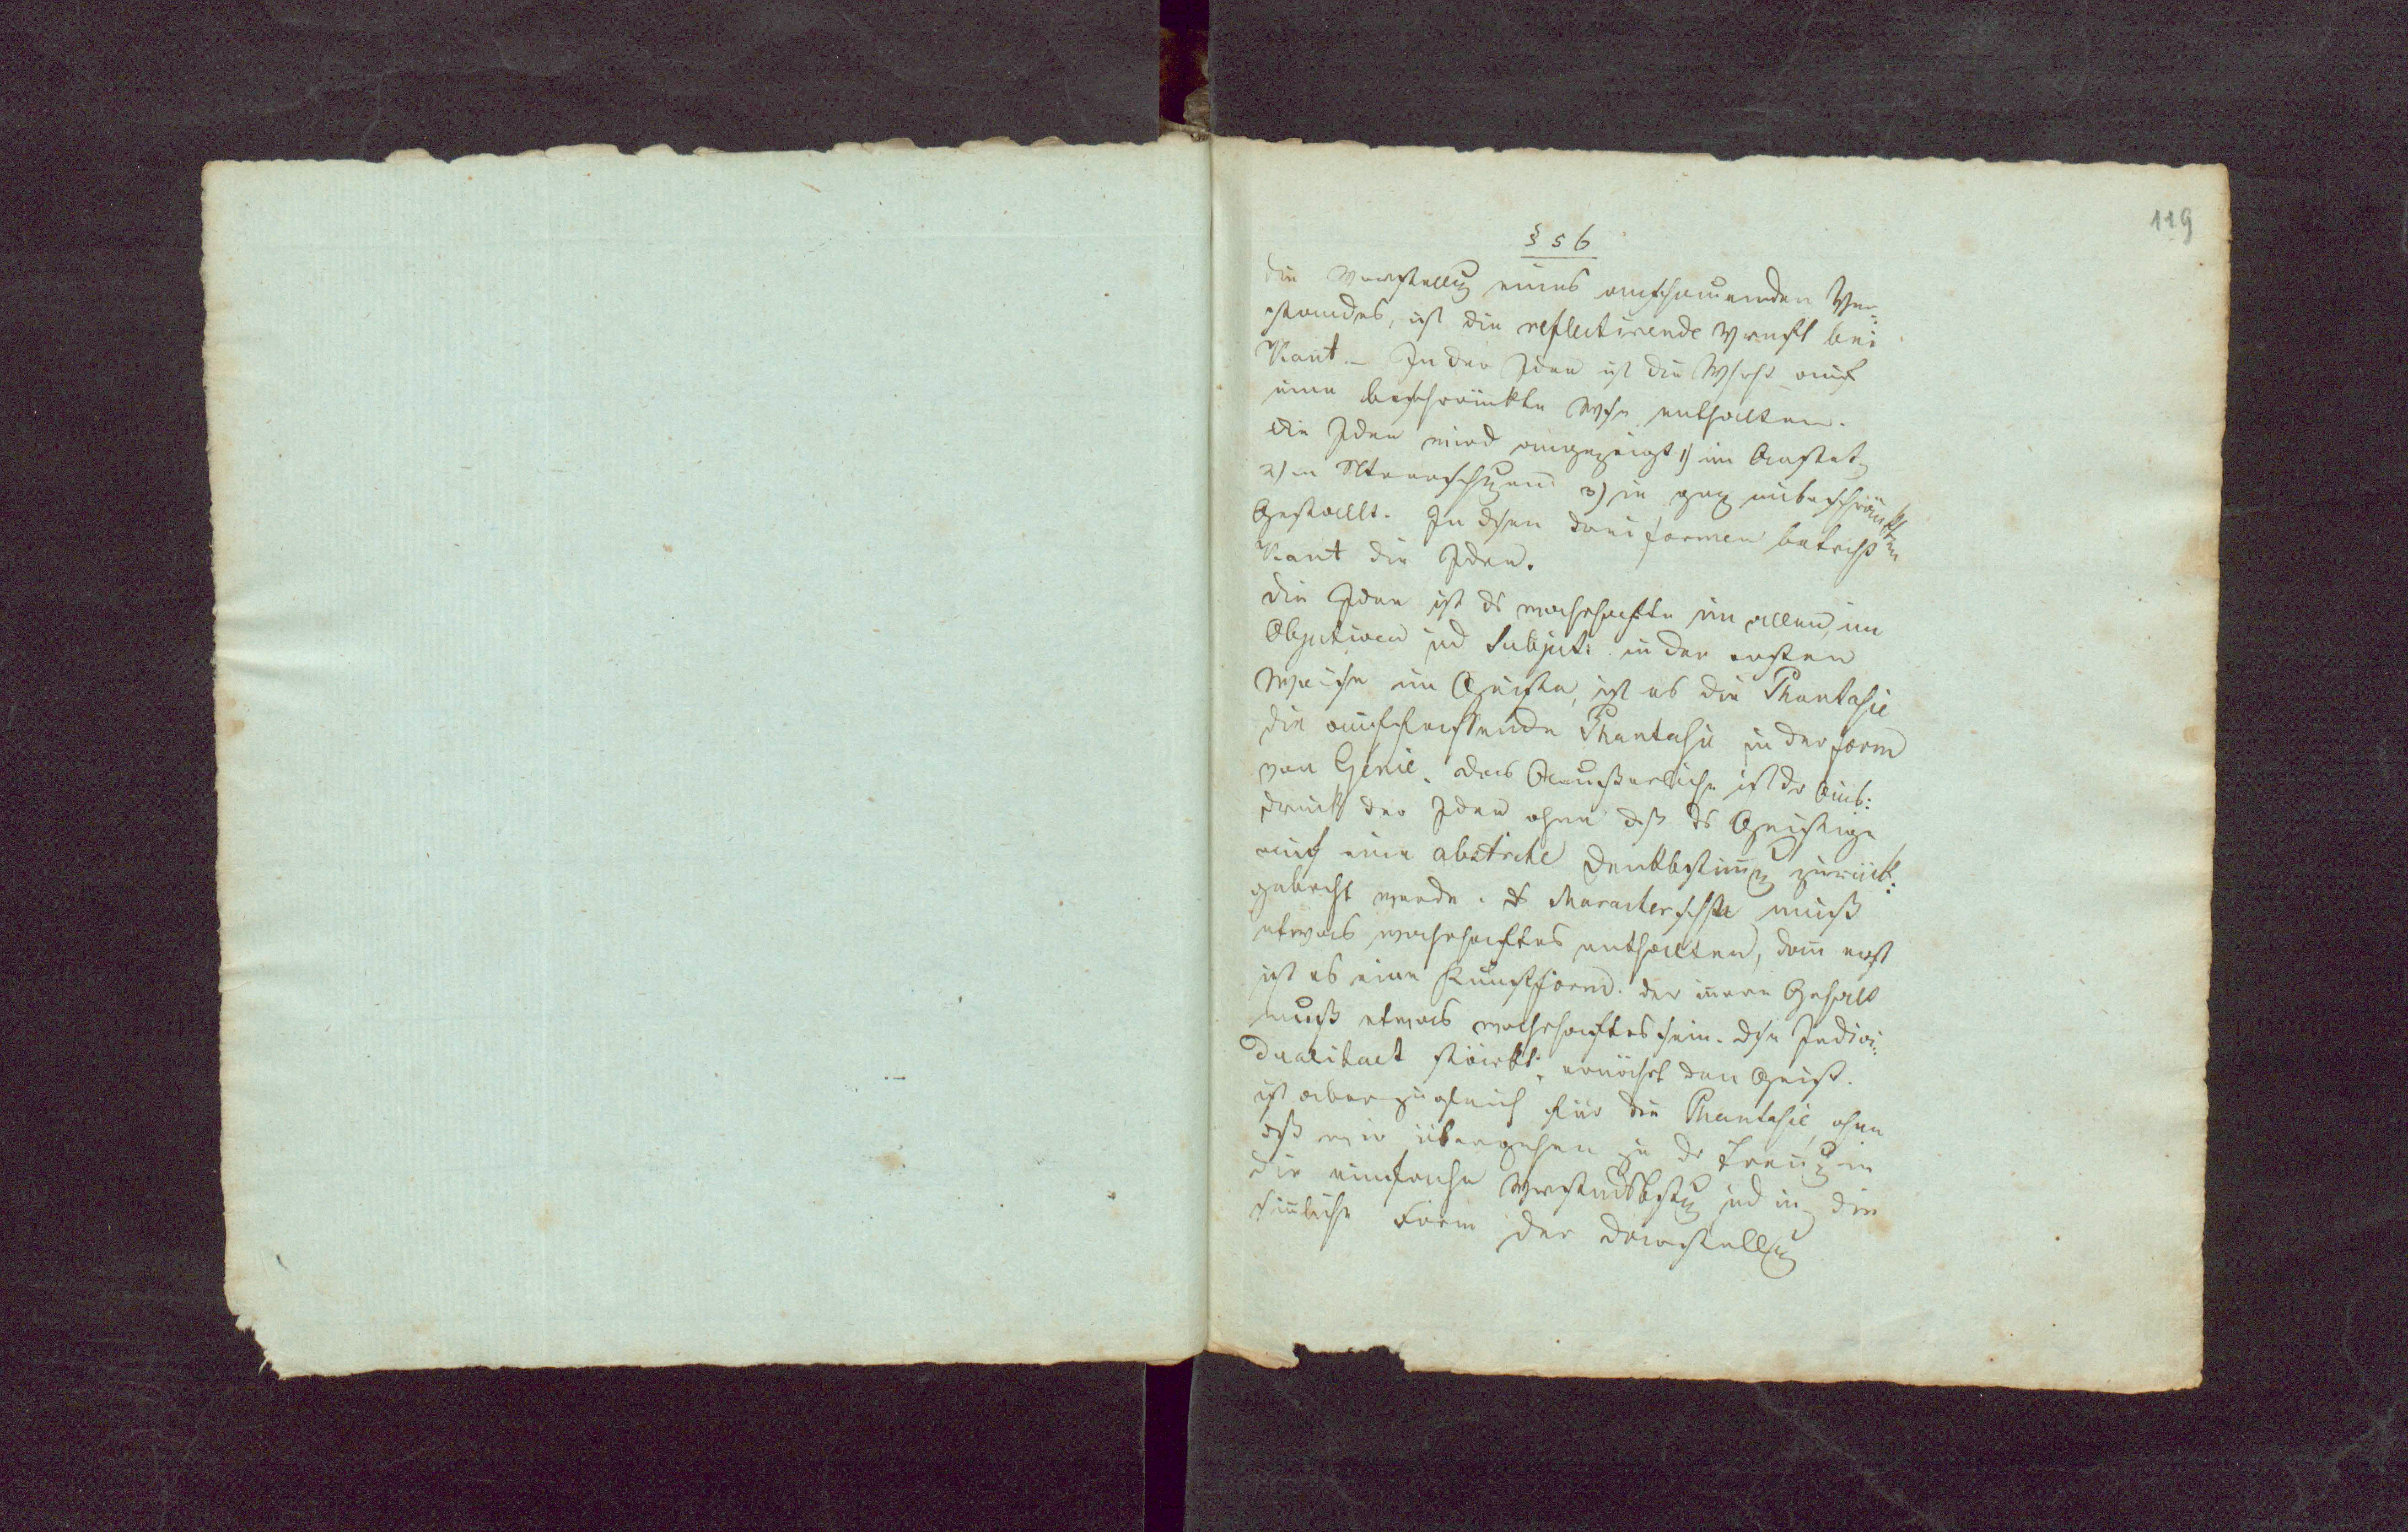 119
§ 56
die Vorstellung eines anschauenden Ver-
standes, ist die reflectirende Vernft bei
Kant. – In der Idee ist die Whrht auf
eine beschränkte Wse enthalten.
Die Idee wird angezeigt 1) im
2) in 3) in gz unbeschränkten
Gestallt. In dsen drei formen betrcht
Kant die Idee.
die Idee ist ds wahrhafte in allem, im
Objectiven ud Subject: in der ersten
Weise im Geiste, ist es die Phantasie
die auffassende Phantasie in der form
von Genie. das Aeußerliche ist dr Aus:
druck der Idee ohne dß ds Geistige
auf eine abstrcte Denkbestimg zurück:
gebrcht werde. ds Characterschste muß
etwas wahrhaftes enthalten, dann erst
ist es eine Kunstform. der innere Gehalt
muß etwas wahrhaftes sein. dse Indivi:
dualitaet stärkt, ernährt den Geist.
ist aber zugleich für die Phantasie, ohne
dß wir übergehen zu dr Trenng in
die einfache Verstndsbstg ud in die
sinnliche Form der Darstellung